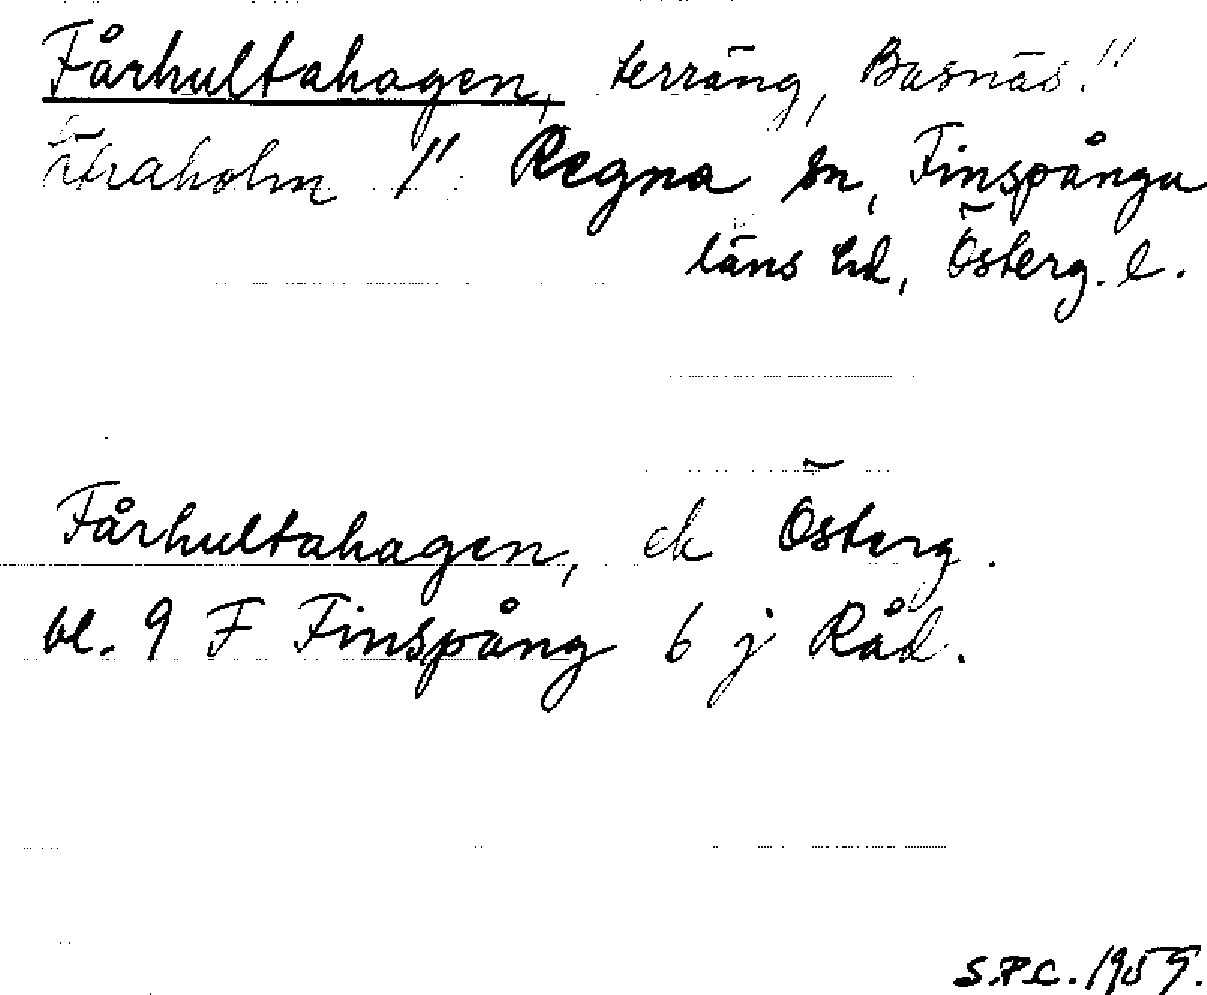 Fårhultahagen, terräng, Basnäs!"
Regna sn, Finspånga
läns hd, Österg. l.
Fårhultahagen, ek Österg.
bl. 9 F Finspång 6 j Råd.
S.P.C. 1959.